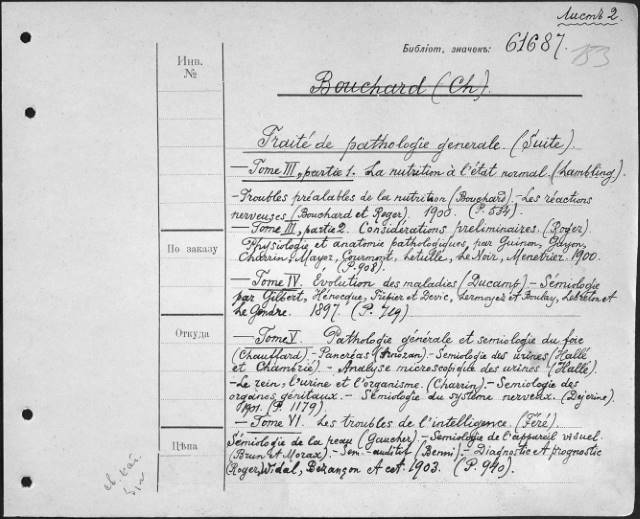 Листъ 2.
Библіот. значекъ: 61687.
153
Инв.
№
Bouchard (Ch).
Traité de pathologie generale. (Suite).
— Tome III, partie 1. La nutrition à l'état normal. (Lambling).
- Troubles préalables de la nutrition (Bouchard). - Les réactions
nerveuses (Bouchard et Roger). 1900. (P. 534).
— Tome III, partie 2. Considérations preliminaires. (Roger).
По заказу
Physiologie et anatomie pathologiques, par Guinon, Guyon,
Charrin, Mayor, Courmont, Letulle, Le Noir, Menetrier. 1900.
(P. 908).
— Tome IV. Evolution des maladies (Ducamp). - Sémiologie
par Gilbert, Hénocque, et Devic, Lermoyez et Boulay, Lebreton et
Le Gendre. 1897. (P. 719)
Откуда
— Tome V. Pathologie générale et semiologie du foie
(Chauffard) - Pancréas (Arnozan). - Semiologie des urines (Hallé
et Chambrié). - Analyse microscopique des urines (Hallé).
- Le rein, l'urine et l'organisme. (Charrin). - Semiologie des
organes génitaux. - Sémiologie du système nerveux. (Dejerine).
1901. (P. 1179).
— Tome VI. Les troubles de l'intelligence. (Féré).
Цѣна
Sémiologie de la peau (Gaucher). - Semiologie de l'appareil visuel
(Brun et Morax). - Sem. auditif (Bonni) - Diagnostic et prognostic
(Roger, Widal, Bezançon et cet. 1903. (P. 940).